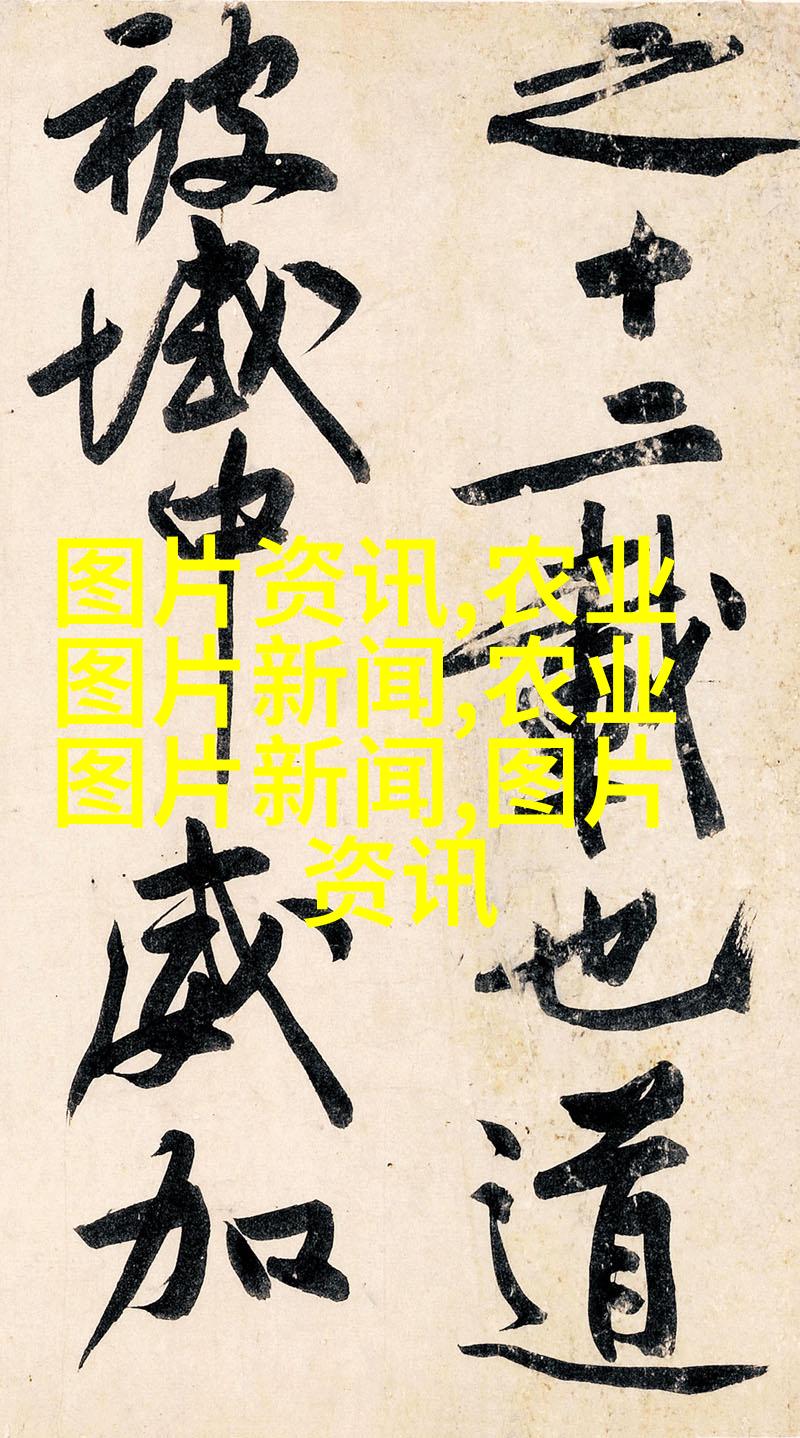 之十二載也道
被域中威加
图片资讯,农业
图片新闻,农业
图片新闻,图片
资讯